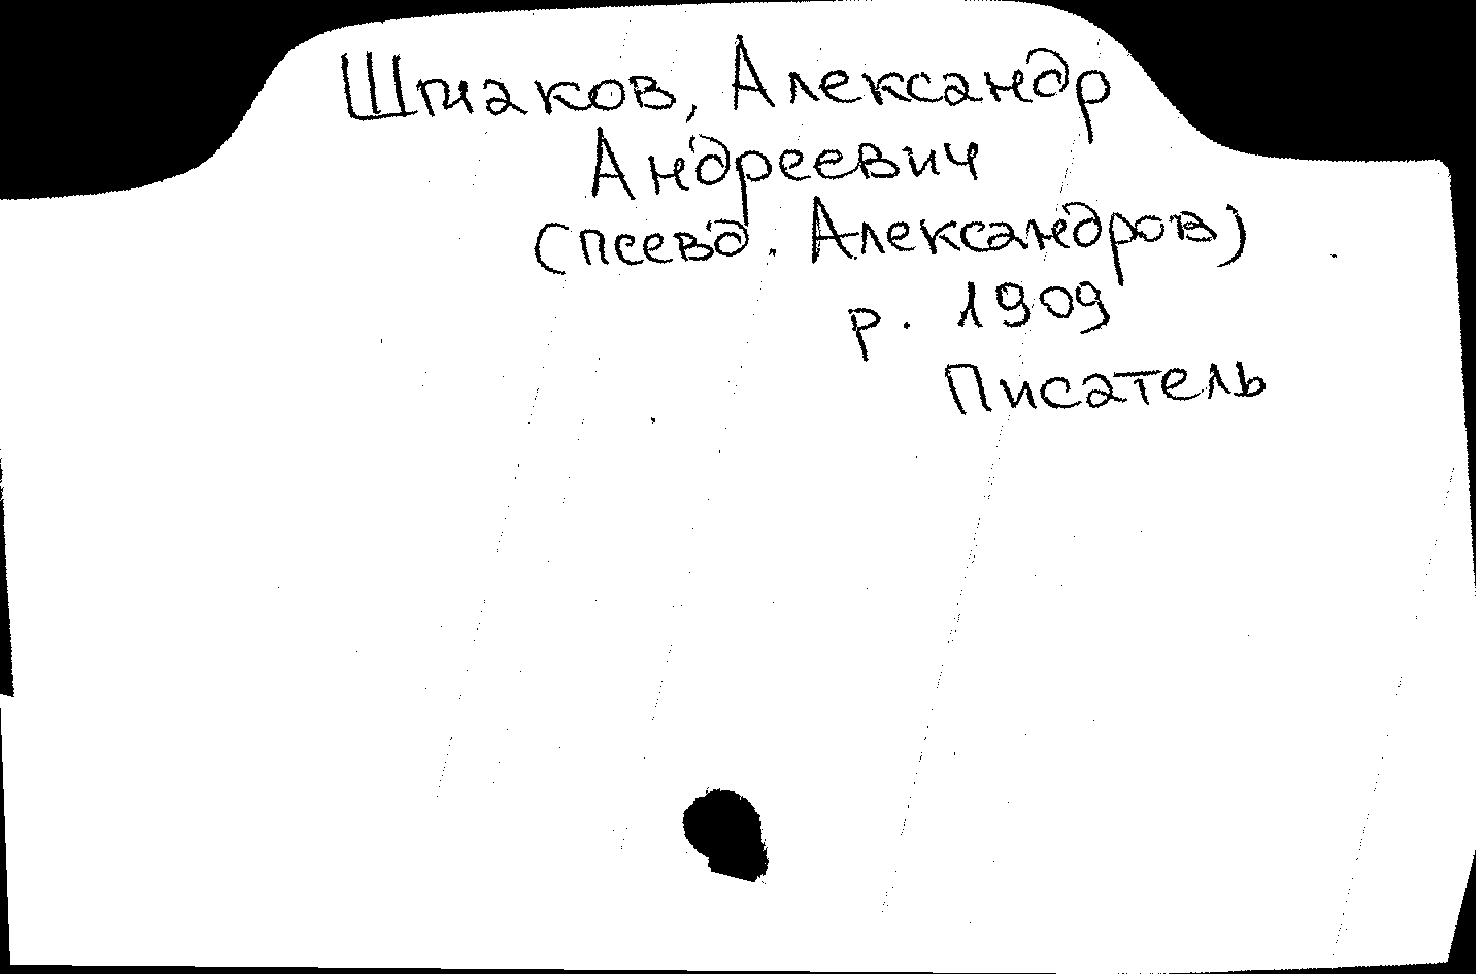 Шмаков, Александр
Андреевич
(псевд. Александров)
р. 1909
Писатель